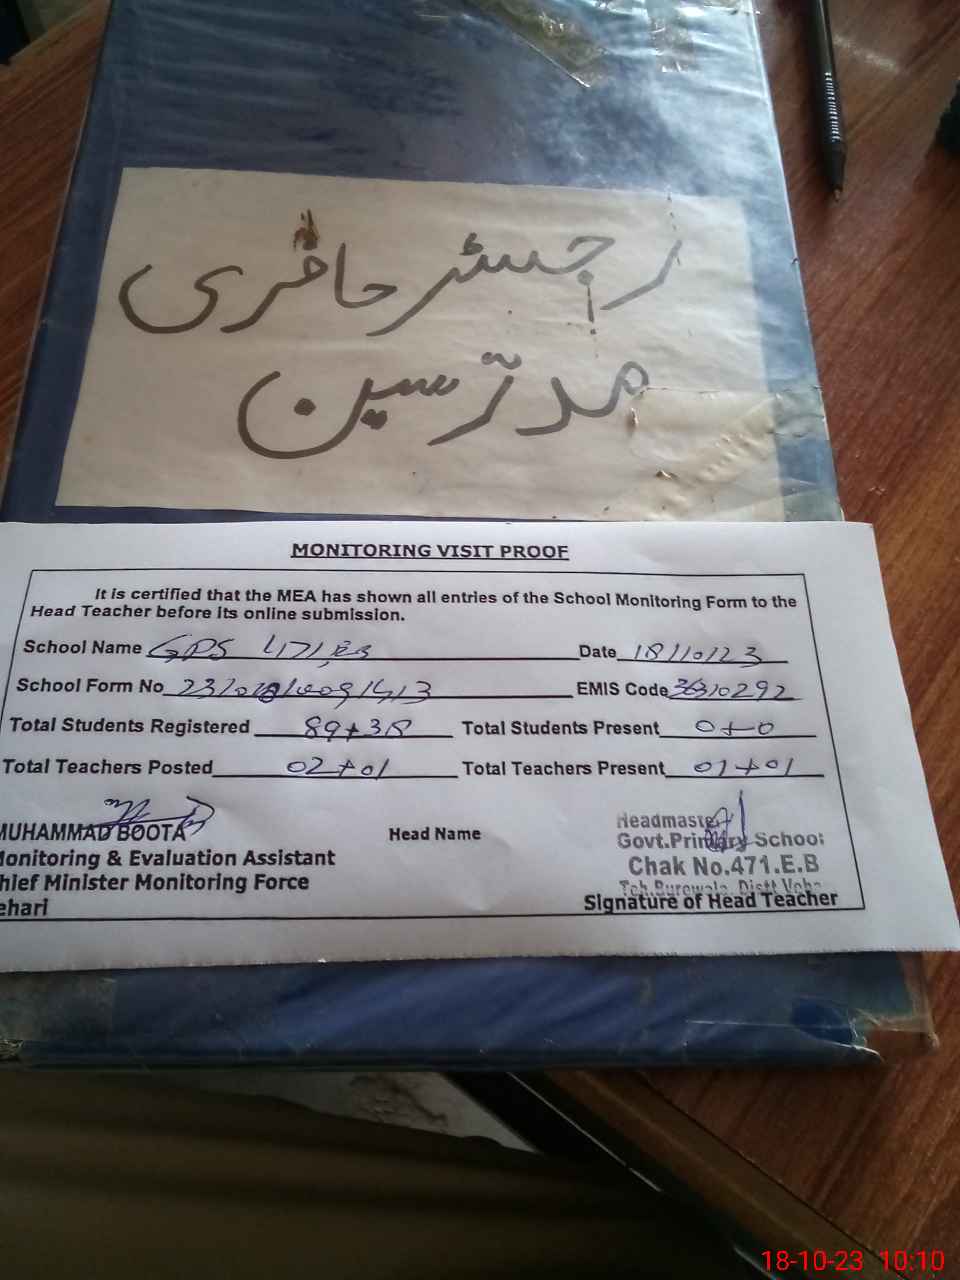 رجسٹر حاضری
مدرّسین
MONITORING VISIT PROOF
It is certified that the MEA has shown all entries of the School Monitoring Form to the
Head Teacher before its online submission.
School Name GPS 471, EB Date 18/10/23
School Form No EMIS Code 36310292
Total Students Registered 89+38 Total Students Present 0+0
Total Teachers Posted 02+01 Total Teachers Present 01+01
MUHAMMAD BOOTA Head Name Headmaster
Monitoring & Evaluation Assistant Govt.Primary School
Chief Minister Monitoring Force Chak No.471.E.B
Teh.Burewala. Distt
Signature of Head Teacher
18-10-23 10:10